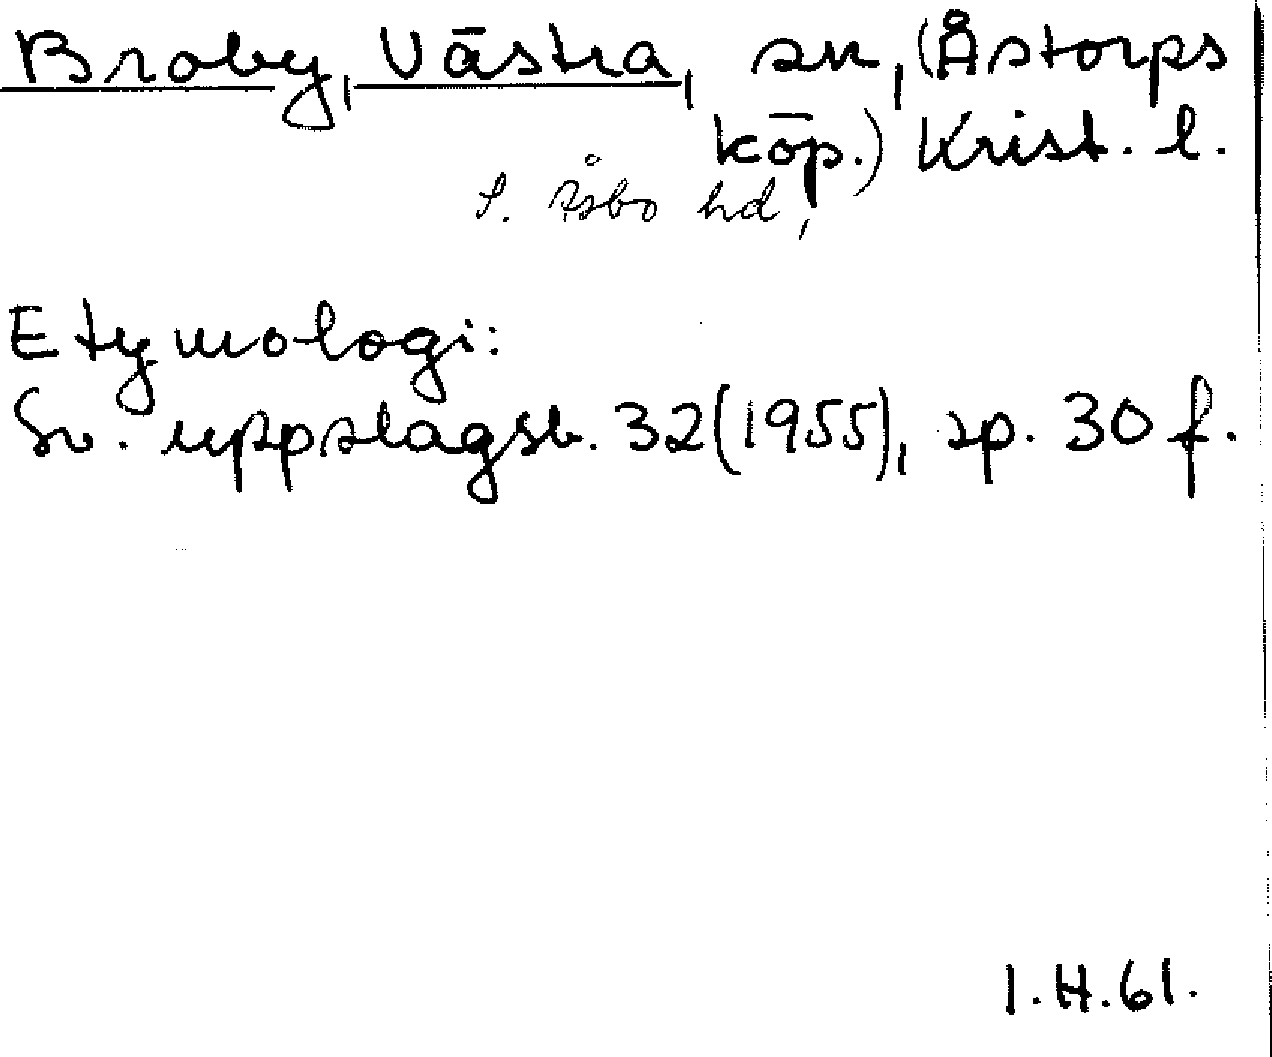 Broby, Västra, sn, (Åstorps
köp.) Krist. l.
S. Åsbo hd,
Etymologi:
Sv. uppslagsb. 32(1955), sp. 30 f.
I.H.61.